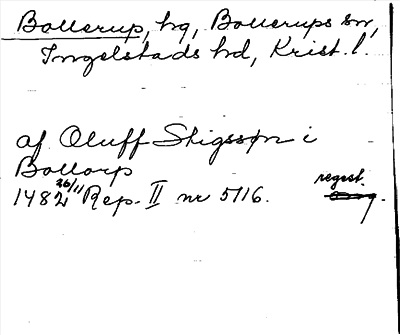 Bollerup, hg, Bollerups sn,
Ingelstads hd, Krist. l.
af Oluff Stigsspn i
Bollorp
1482 26/11 Rep. II nr 5116. regest.